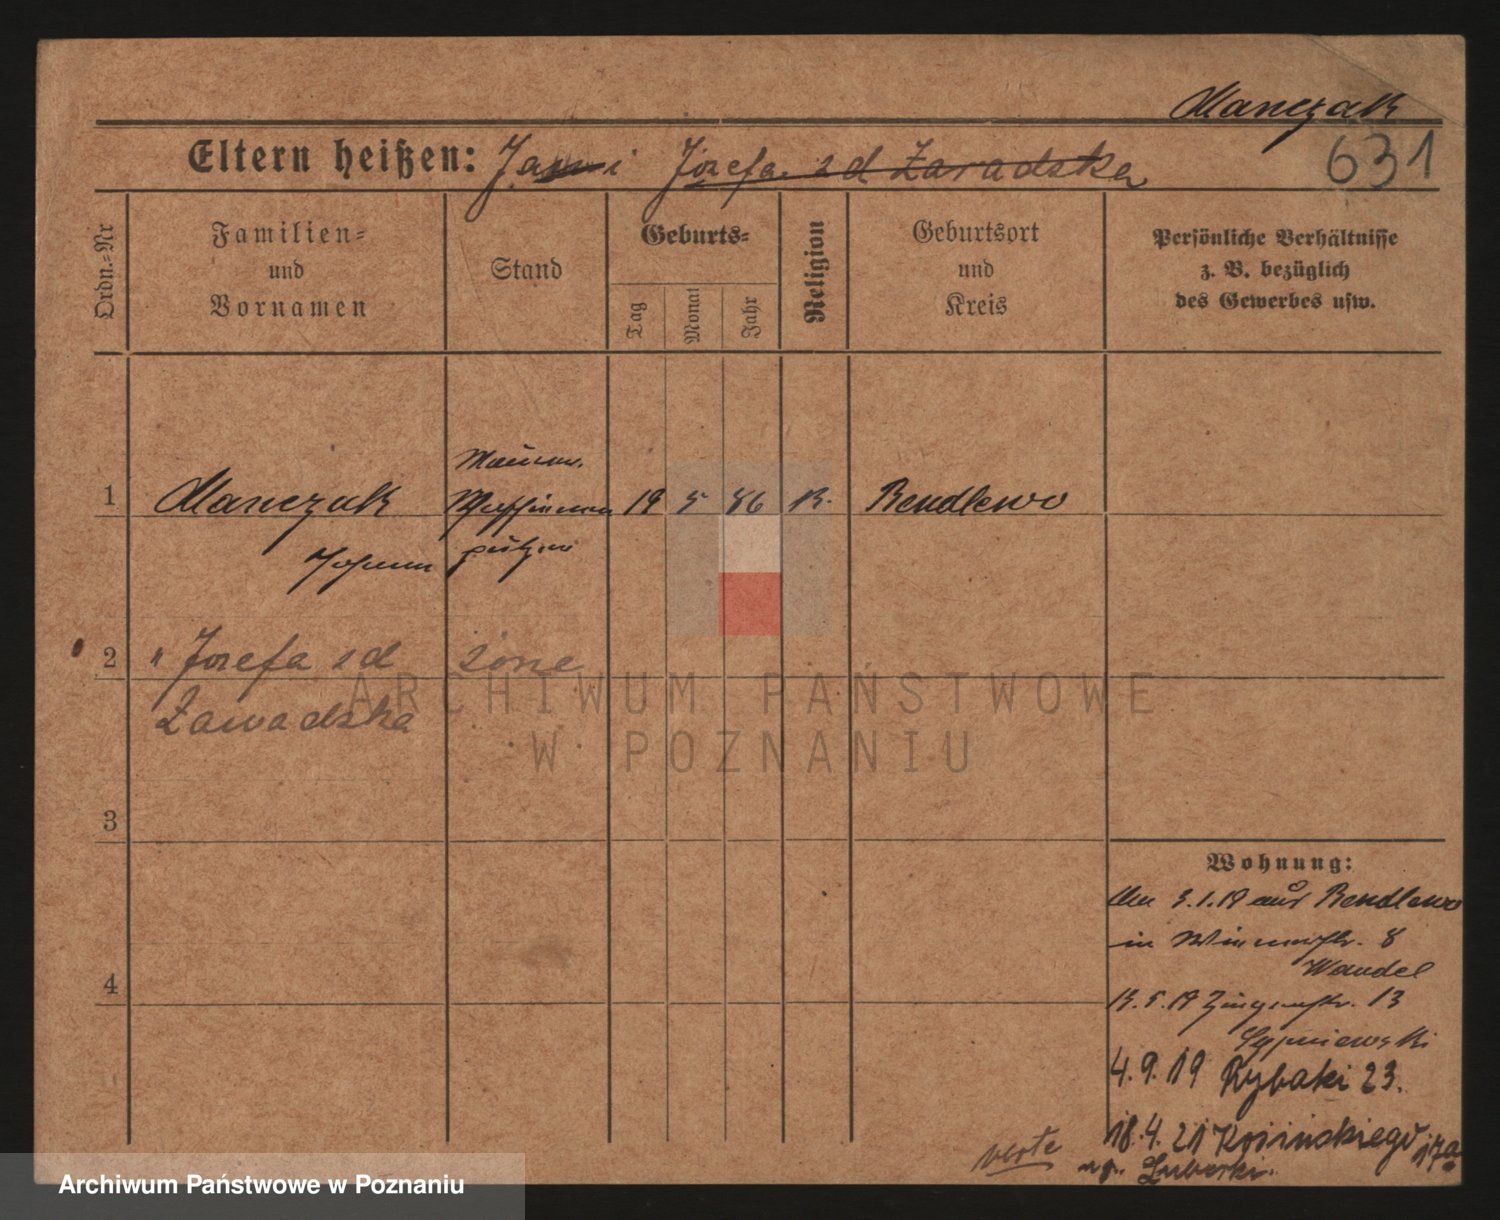 Manczak
Eltern heißen: Jan i Józefa z d Zawadzka
631
Ordn.=Nr
Familien=
und
Vornamen
Stand
Geburts=
Tag
Monat
Jahr
Religion
Geburtsort
und
Kreis
Persönliche Verhältnisse
z. B. bezüglich
des Gewerbes usw.
1
Manczak
Johann
19 5 86 K. Rendlewo
2
" Józefa z d
żona
Zawadzka
ARCHIWUM PAŃSTWOWE
W POZNANIU
3
4
Wohnung:
3.1.19 aus Rendlewo
in 8
Wandel
.5.19 13
Sypniewski
4.9.19 Rybaki 23.
18.4.21 Kosińskiego 17a
verte
Archiwum Państwowe w Poznaniu